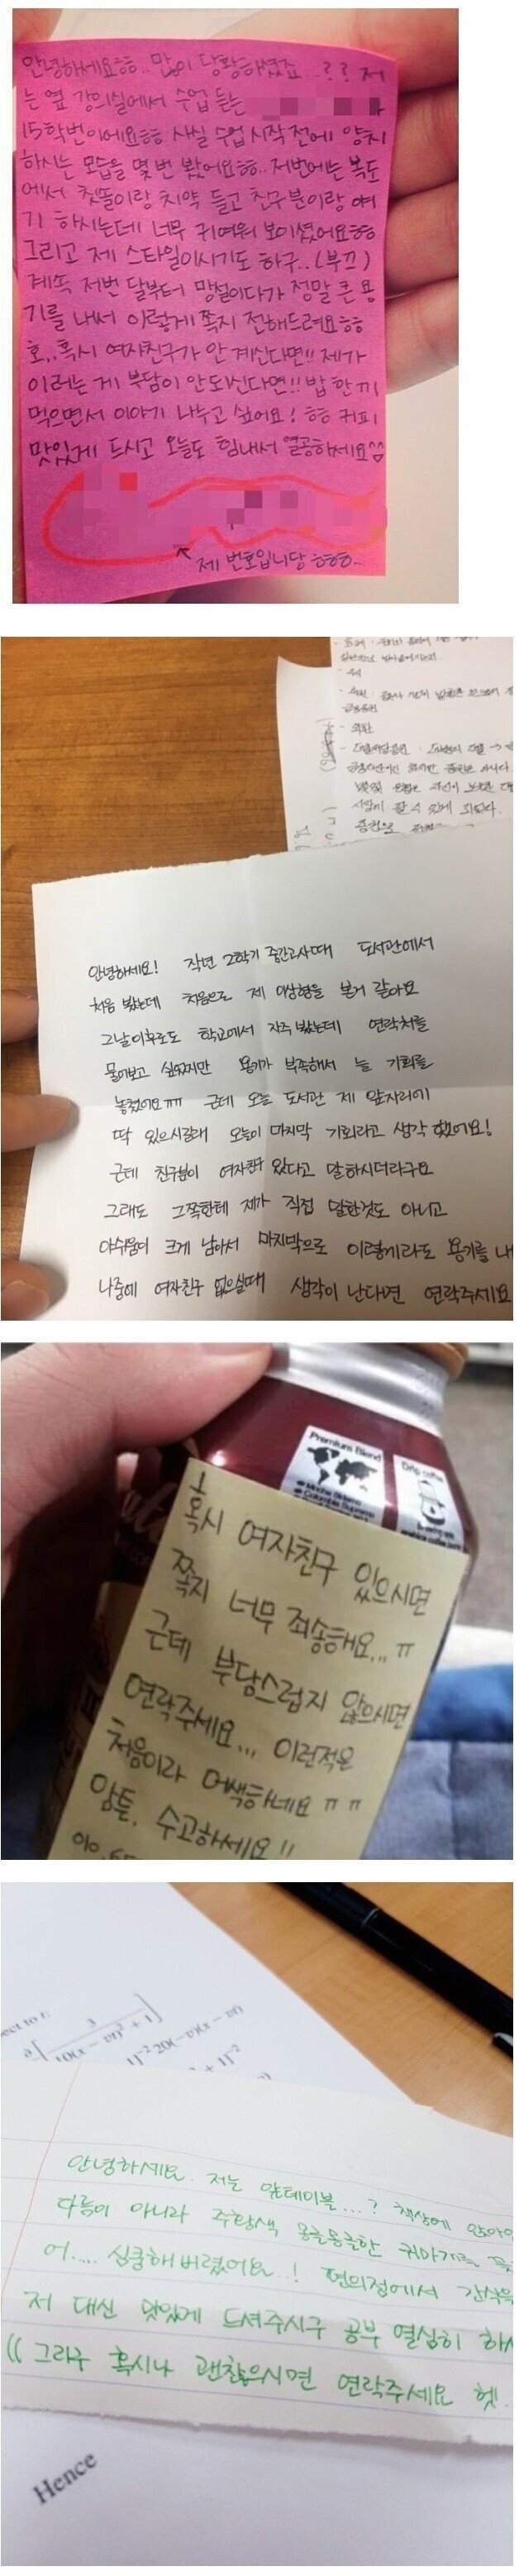 안녕하세요ㅎㅎ.. 많이 당황하셨죠..?? 저
는 옆 강의실에서 수업 듣는
15학번이에요ㅎㅎ 사실 수업 시작 전에 양치
하시는 모습을 몇 번 봤어요ㅎㅎ.. 저번에는 복도
에서 칫똘이랑 치약 들고 친구분이랑 얘
기 하시는데 너무 귀여워 보이셨어요ㅎㅎ
그리고 제 스타일이시기도 하구..(부끄)
계속 저번 달부터 망설이다가 정말 큰 용
기를 내서 이렇게 쪽지 전해드려요ㅎㅎ
호,,혹시 여자친구가 안 계신다면!! 제가
이러는 게 부담이 안되신다면!! 밥 한 끼
먹으면서 이야기 나누고 싶어요! ㅎㅎ 커피
맛있게 드시고 오늘도 힘내서 열공하세요^^
제 번호입니당 ㅎㅎㅎ..
안녕하세요! 작년 2학기 중간고사때 도서관에서
처음 봤는데 처음으로 제 이상형을 본거 같아요
그날이후로도 학교에서 자주 봤는데 연락처를
물어보고 싶었지만 용기가 부족해서 늘 기회를
놓쳤어요ㅠㅠ 근데 오늘 도서관 제 앞자리에
딱 있으시길래 오늘이 마지막 기회라고 생각 했어요!
근데 친구분이 여자친구 있다고 말하시더라구요
그래도 그쪽한테 제가 직접 말한것도 아니고
아쉬움이 크게 남아서 마지막으로 이렇게라도 용기를 내
나중에 여자친구 없으실때 생각이 난다면 연락주세요
Premium Blend
Drip coffee
혹시 여자친구 있으시면
쪽지 너무 죄송해요...ㅠ
근데 부담스럽지 않으시면
연락주세요... 이런적은
처음이라 어색하네요 ㅠㅠ
암튼, 수고하세요!!
010.65
ect to t:
안녕하세요. 저는 앞테이블...? 책상에 앉아있
다름이 아니라 주황색 몽글몽글한 귀마개를 꽂
어.... 심쿵해버렸어요..! 편의점에서 간식을
저 대신 맛있게 드셔주시구 공부 열심히 하시
(( 그리구 혹시나 괜찮으시면 연락주세요 헷!
Hence